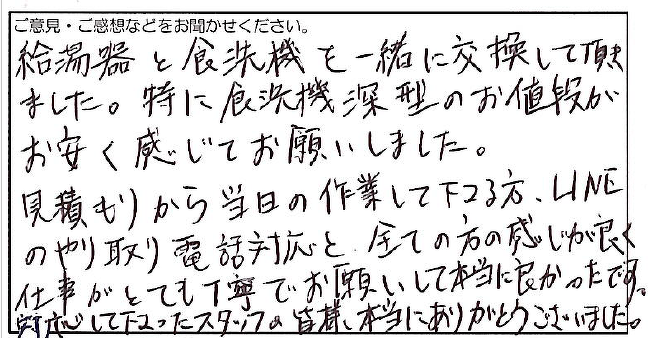 ご意見・ご感想などをお聞かせください。
給湯器と食洗機を一緒に交換して頂き
ました。特に食洗機深型のお値段が
お安く感じてお願いしました。
見積もりから当日の作業して下さる方、LINE
のやり取り電話対応と、全ての方の感じが良く
仕事がとても丁寧でお願いして本当に良かったです。
対応して下さったスタッフの皆様、本当にありがとうございました。